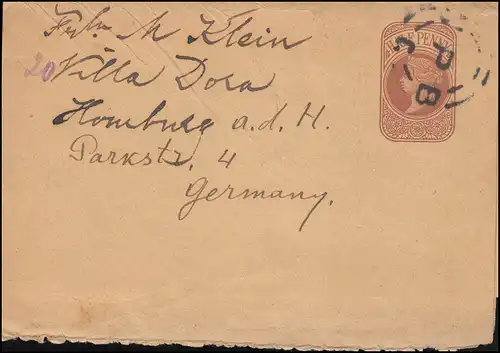 Frln M Klein
20 Villa Dora
Homburg a.d. H.
Parkstr. 4
Germany.
HALF PENNY